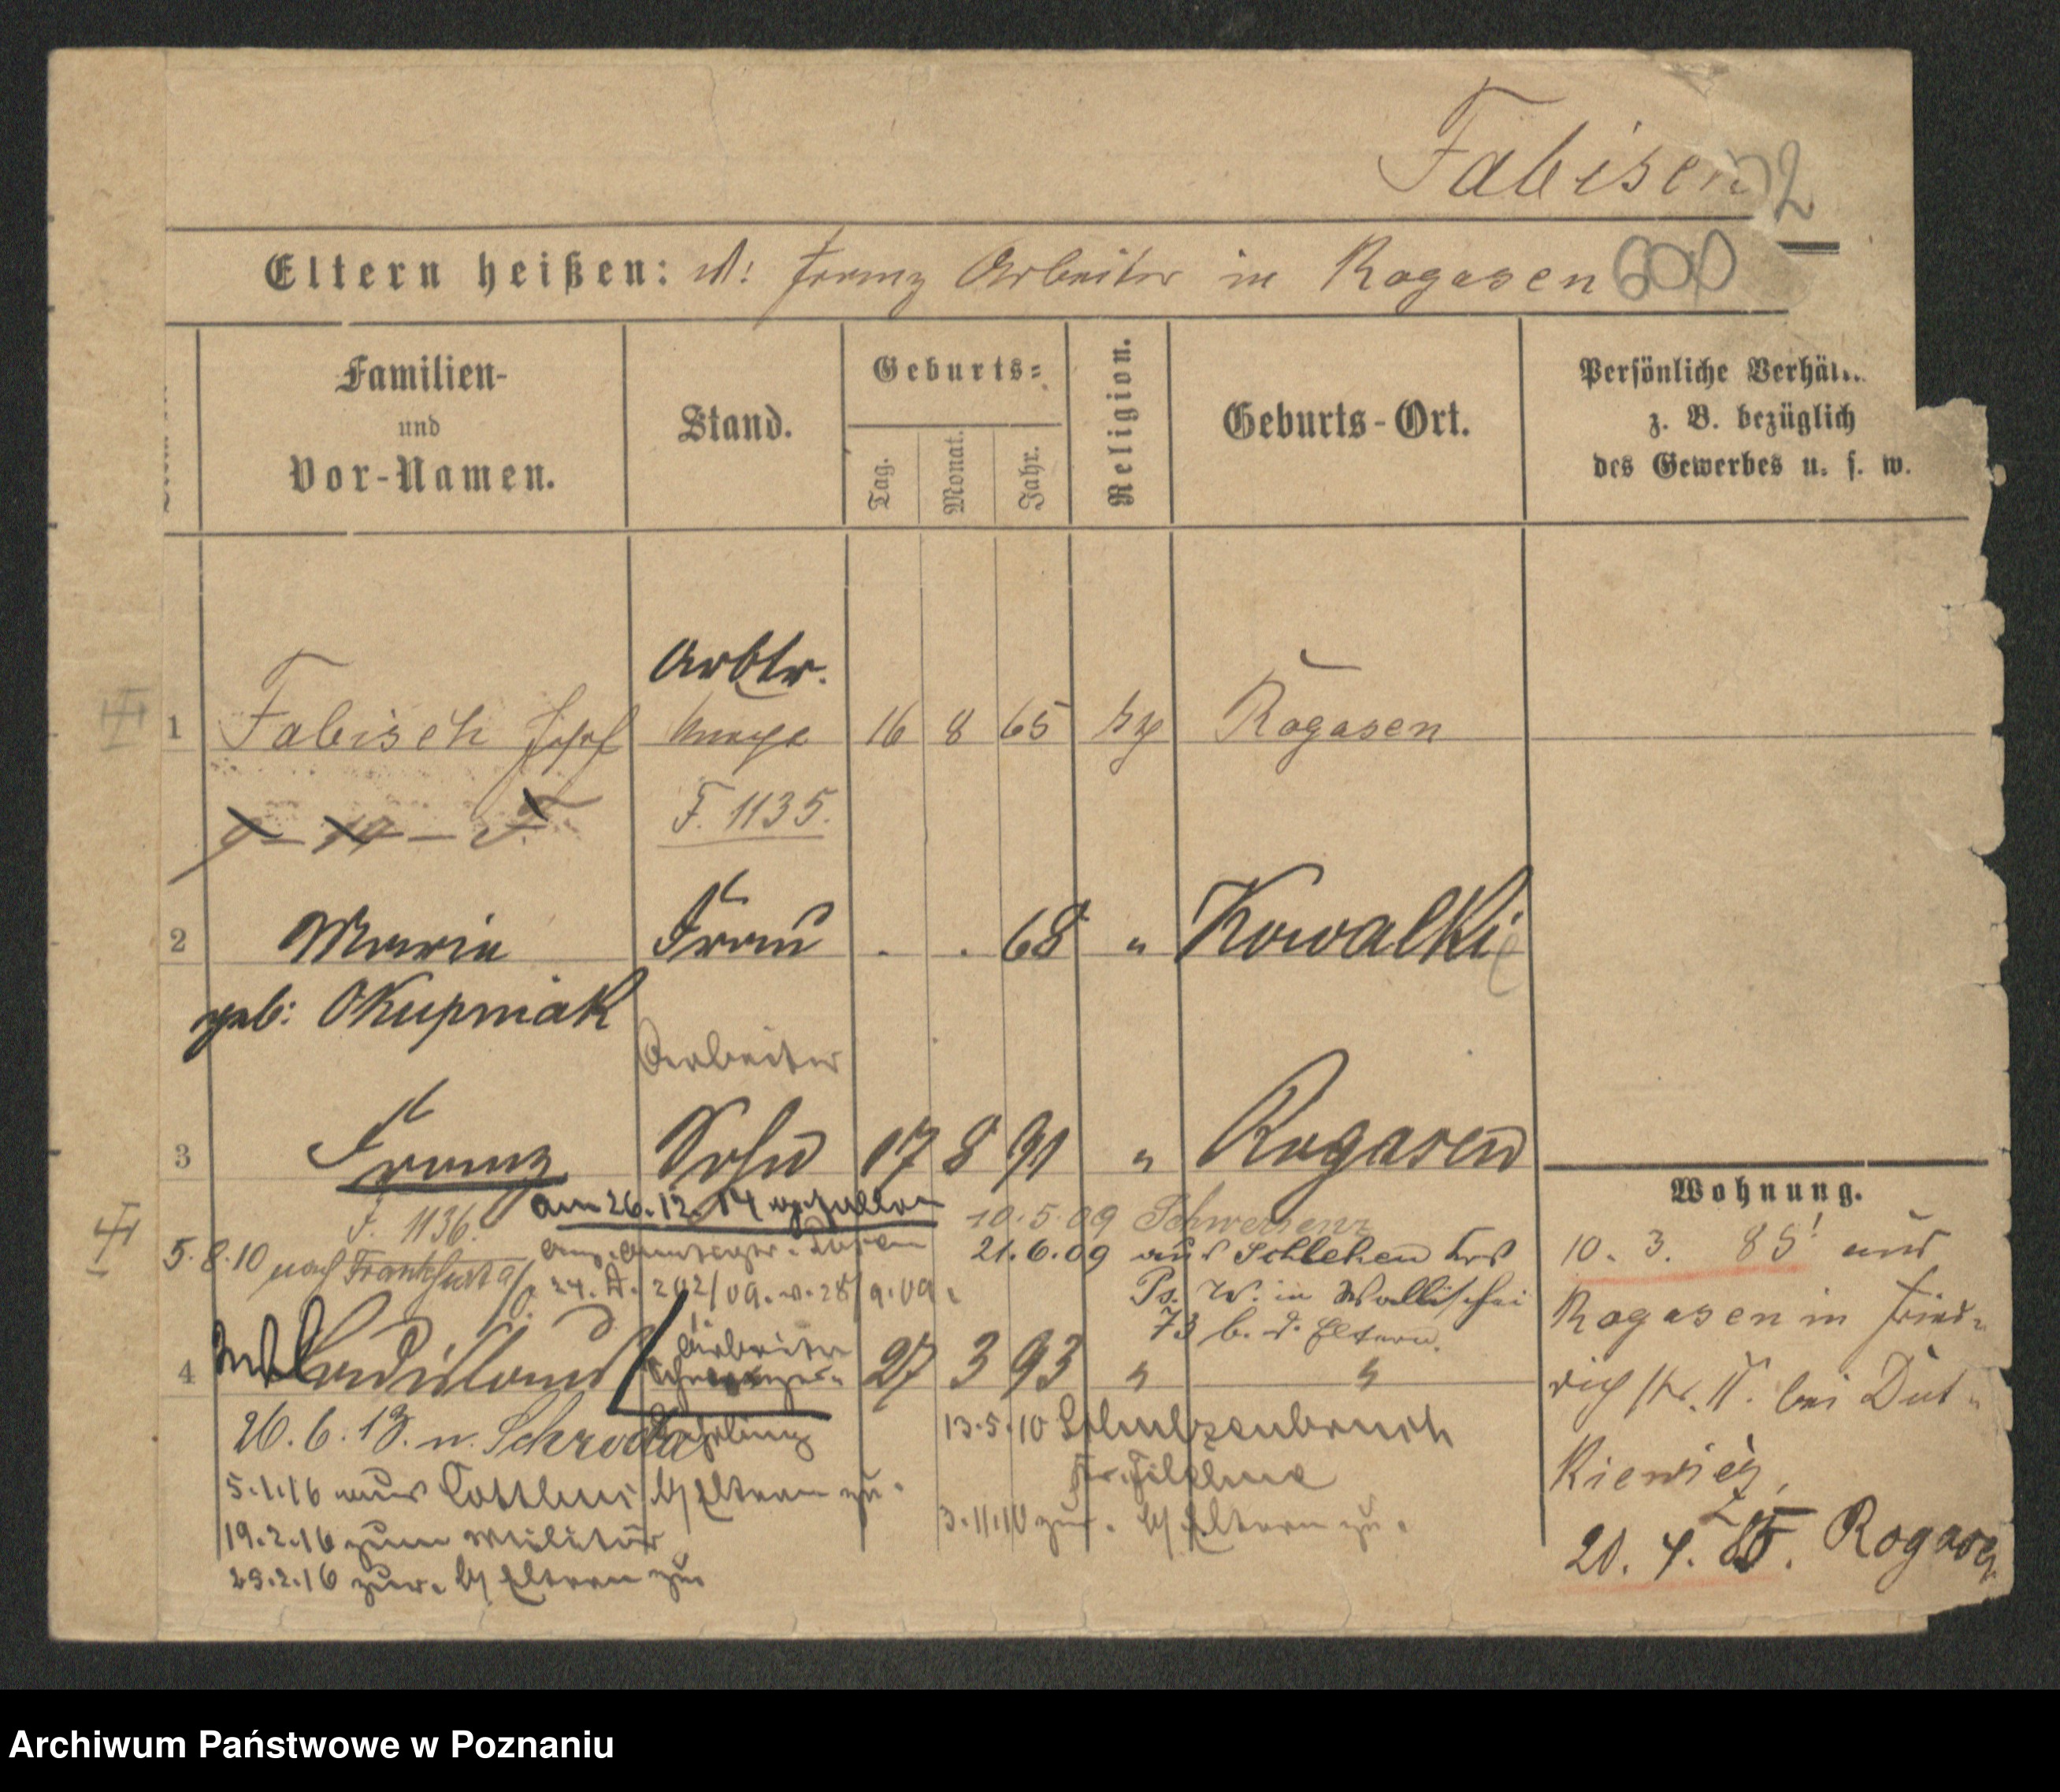 Fabisch
2
Eltern heißen: V: Franz Arbeiter in Rogasen 600
Familien-
und
Vor-Namen.
Stand.
Geburts-
Tag.
Monat.
Jahr.
Religion.
Geburts-Ort.
Persönliche Verhäl
z. B. bezüglich
des Gewerbes u. s. w.
Arbtr.
1 Fabisch Josef 16 8 65 Rogasen
F. 1135.
2 Maria Frau . . 68 " Kowalki
geb: Okupniak
Arbeiter
3 Franz Sohn 17 8 91 " Rogasen
F. 1136.
am 26.12.14 gefallen
10.5.09 Schwersenz
5.8.10 nach Frankfurt a/O.
21.6.09 aus Schlehen Krs
24. A. 202/09. v. 28/9.09.
Ps. W. in Wallischei
73 b. d. Eltern.
4 Ladislaus Arbeiter 27 3 93 " "
26.6.13. n. Schroda
13.5.10 Schulzenbruch
Kr. Filehne
5.1.16 aus Cottbus b/ Eltern zu.
3.11.10 zur. b/ Eltern zu.
19.2.16 zum Militär
23.2.16 zur. b/ Eltern zu
Wohnung.
10. 3. 85 aus
Rogasen in Fried-
rich str. 11. bei Dut-
kiewicz,
20. 4. 85. Rogasen
Archiwum Państwowe w Poznaniu